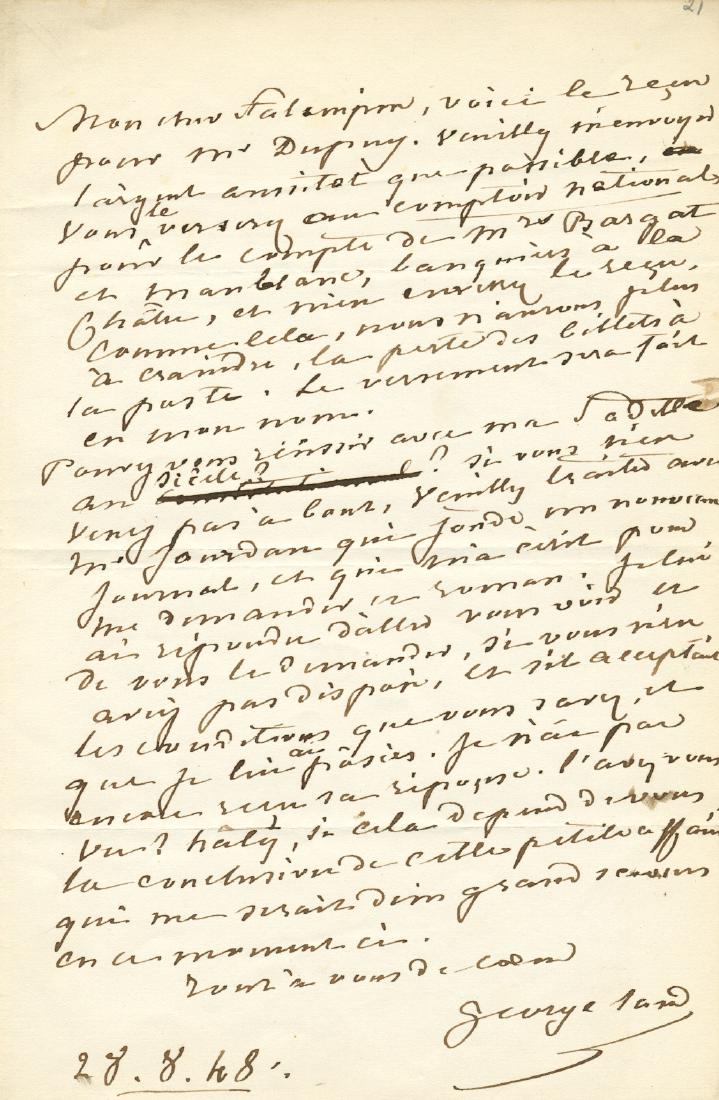 21
Mon cher Falempin, voici le reçu
pour Mr Dupuy. Veuillez m'envoyer
l'argent aussitôt que possible, ou
vous le verserez au comptoir national
pour le compte de Mrs
et Manblanc, banquiers à la
Châtre, et m'en enverrez le reçu.
Comme cela, nous n'aurons plus
à craindre, la perte des billets à
la poste. Le versement sera fait
en mon nom.
Pouvez vous réussir avec ma Fadette
au Siècle? ? si vous n'en
venez pas à bout, veuillez traiter avec
Mr Jourdan qui fonde un nouveau
journal, et qui m'a écrit pour
me demander ce roman. Je lui
ai répondu d'aller vous voir et
de vous le demander, si vous n'en
avez pas disposé, et s'il acceptait
les conditions que vous savez, et
que je lui ai fixées. Je n'ai pas
encore reçu sa réponse. L'avez vous
vu? hatez, si cela dépend de vous
la conclusion de cette petite affaire
qui me serait d'un grand secours
en ce moment ci.
Tout à vous de coeur
George Sand
28. 8. 48.